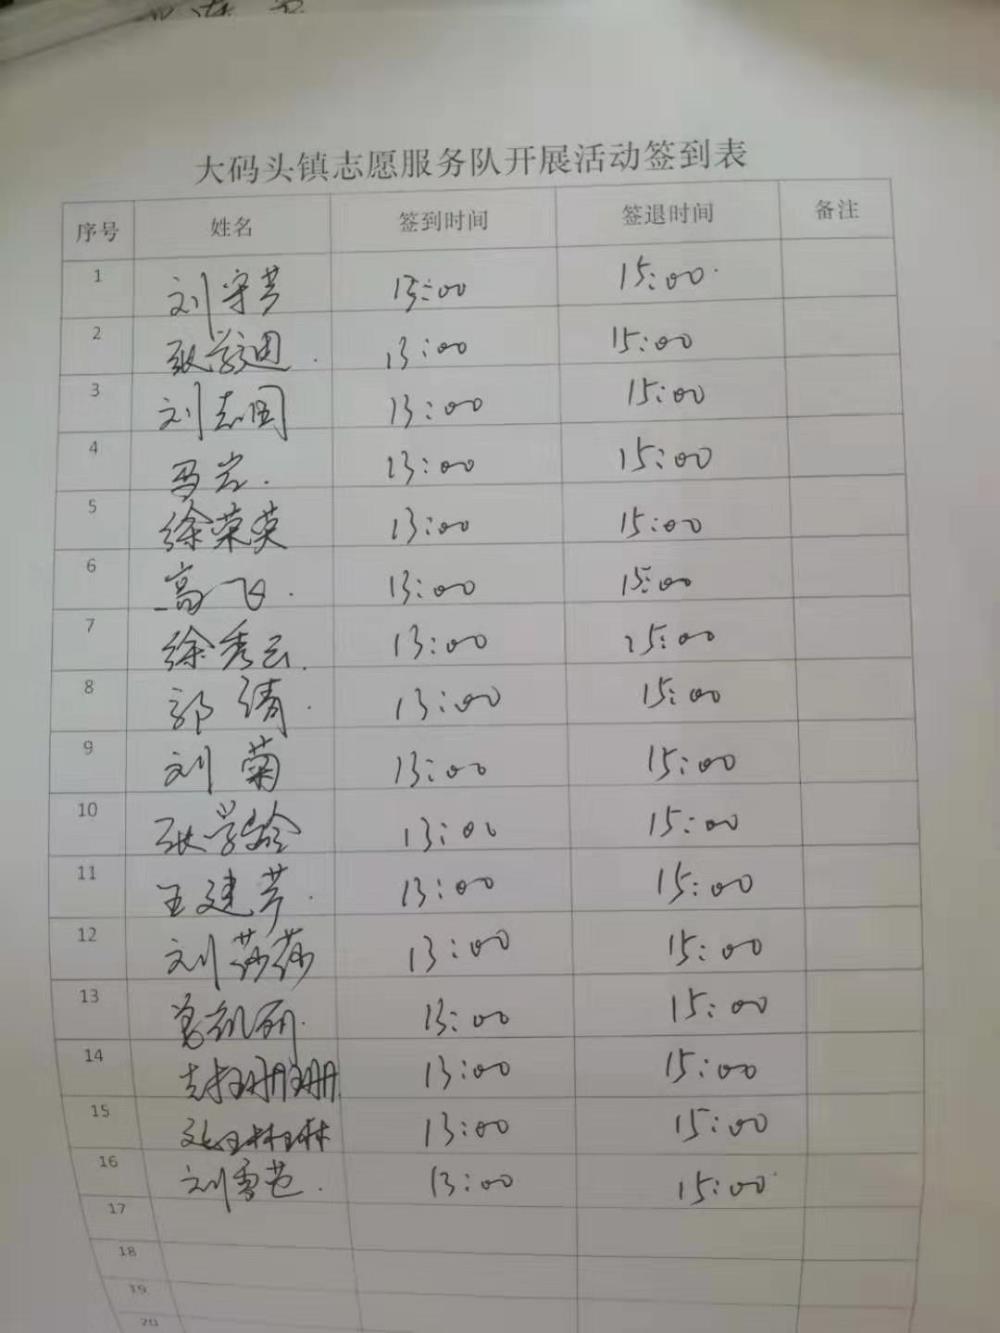 大码头镇志愿服务队开展活动签到表
序号 姓名 签到时间 签退时间 备注
1 刘守芹 13:00 15:00
2 张学迪 13:00 15:00
3 刘志国 13:00 15:00
4 马岩 13:00 15:00
5 徐荣英 13:00 15:00
6 高飞 13:00 15:00
7 徐秀云 13:00 15:00
8 郭靖 13:00 15:00
9 刘菊 13:00 15:00
10 张学龄 13:00 15:00
11 王建芹 13:00 15:00
12 刘莎莎 13:00 15:00
13 13:00 15:00
14 13:00 15:00
15 13:00 15:00
16 刘雪芭 13:00 15:00
17
18
19
20